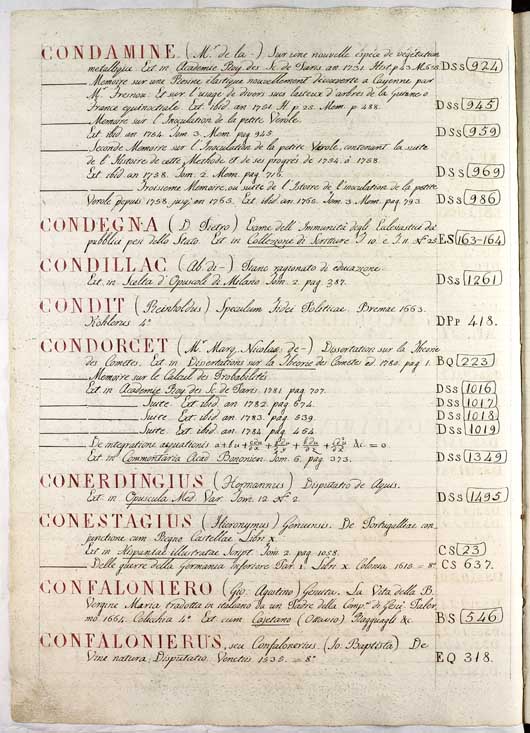 CONDAMINE (M.r de la -) Sur une nouvelle espéce de végétation
metallique. Ext. in Academie Roy. des Sc. de Paris. an. 1731. Hist. p. 23. M.
DSs 924
Memoire sur une Resine élastique nouvellement découverte a Cayenne par
M.r Fresnou: et sur l'usage de divers sucs laiteux d'arbres de la Guiane o
France équinoctiale. Ext. ibid. an. 1751. H. p. 25. Mem. p. 488.
DSs 945
Memoire sur l'Inoculation de la petite Verole.
Ext. ibid. an 1754. Tom. 3. Mem. pag. 945.
DSs 959
Seconde Memoire sur l'Inoculation de la petite Verole, contenant la suite
de l'Histoire de cette Methode et de ses progrés de 1754. à 1758.
Ext. ibid. an 1758. Tom. 2. Mem. pag. 716.
DSs 969
Troisieme Memoire, ou suite de l'Istoire de l'inoculation de la petite
Verole depuis 1758. jusq' an 1765. Ext. ibid. an. 1765. Tom. 3. Mem. pag. 793.
DSs 986
CONDEGNA (D. Pietro) Esame dell'Immunità degli Eclesiastici dai
pubblici pesi dello Stato. Ext. in Collezione di Scritture T. 10. e T. 11. N.° 25.
ES 163-164
CONDILLAC (Ab. di -) Piano ragionato di educazione.
Ext. in Scelta d'Opuscoli di Milano. Tom. 2. pag. 387.
DSs 1261
CONDIT (Reinholdus) Speculum Fidei Politicae. Bremae 1663.
Kohlerus 4.°
DPp 418.
CONDORCET (M.r Marq. Nicolas de -) Dissertation sur la Théorie
des Cometes. Ext. in Dissertations sur la Théorie des Cometes ed. 1780. pag. 1.
BQ 223
Memoire sur le Calcul des Probabilités.
Ext. in Academie Roy. des Sc. de Paris. 1781. pag. 707.
DSs 1016
Suite. Ext. ibid. an. 1782. pag. 674.
DSs 1017
Suite. Ext. ibid. an. 1783. pag. 539.
DSs 1018
Suite. Ext. ibid. an. 1784. pag. 454.
DSs 1019
De integratione aequationis &c = 0
Ext. in Commentaria Acad. Bononien. Tom. 6. pag. 373.
DSs 1349
CONERDINGIUS (Hermannus) Disputatio de Aquis.
Ext. in Opuscula Med. Var. Tom. 12. N.° 2.
DSs 1495
CONESTAGIUS (Hieronymus) Genuensis. De Portugalliae con
junctione cum Regno Castellae Libri X.
Ext. in Hispaniae illustratae Script. Tom. 2. pag. 1058.
CS 23
Delle guerre della Germania Inferiore Par. 1. Libri X. Colonia 1610. = 8.°
CS 637.
CONFALONIERO (Gio. Agostino) Gesuita. La Vita della B.
Vergine Maria tradotta in italiano da un Padre della Comp.a di Gesù. Paler
mo 1664. Colicchia 4.° Ext. cum Cajetano (Ottavio) Ragguagli &c.
BS 546
CONFALONIERUS, seu Confalonerius. (Jo. Baptista) De
Vini natura Disputatio. Venetiis 1535. = 8.°
EQ 318.